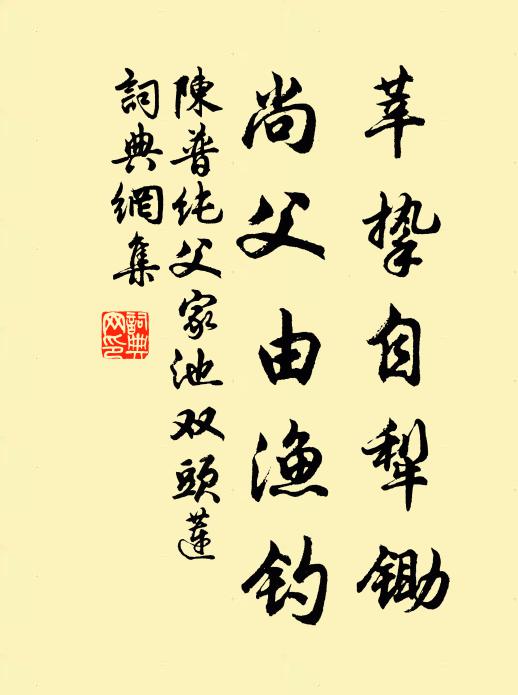 莘挚自犁锄
尚父由渔钓
陳普纯父家池双頭蓮
詞典網集
詞典网印